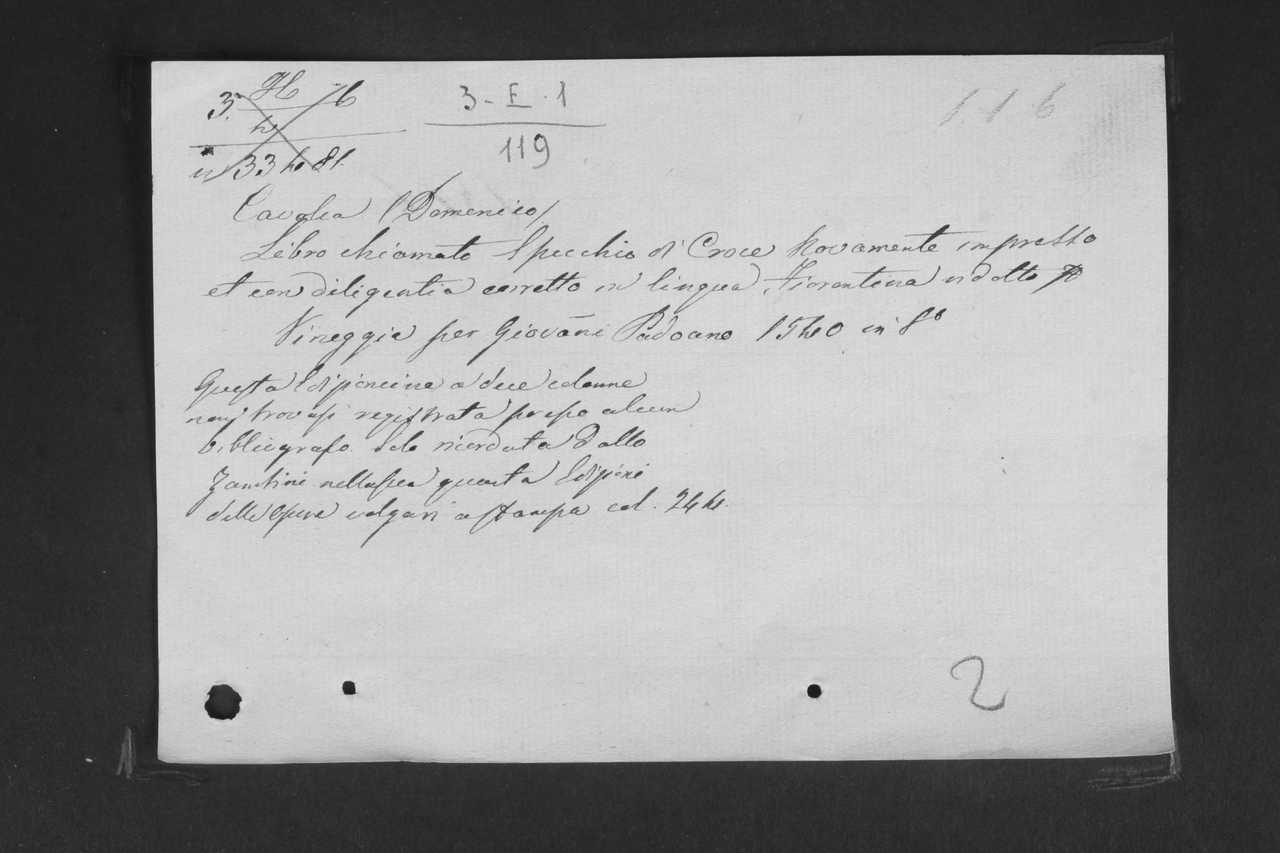 3. H 6
h
in 33 h 81.
3 - E . 1
119
116
Cavalca (Domenico)
Libro chiamato Specchio di Croce Novamente impresso
et con diligentia corretto in lingua Fiorentina ridotto
Vineggia per Giovāni Padoano 1540 in 8°
Questa Edizioncina a due colonne
non trovasi registrata presso alcun
bibliografo
Zambrini nella sua quarta Edizione
delle Opere volgari a stampa col. 244.
2